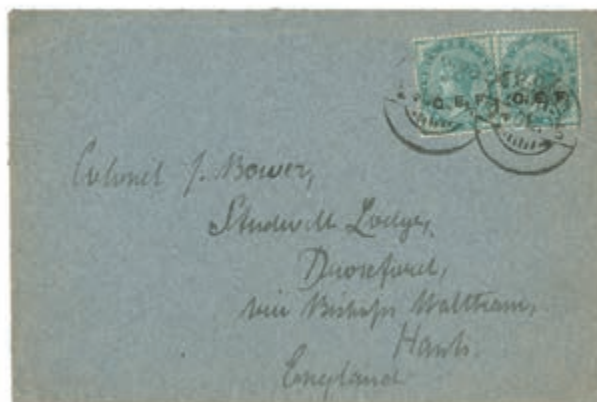 C.E.F. C.E.F.
Colonel J. Bower,
Studwell Lodge,
Droxford,
via Bishops Waltham,
Hants.
England